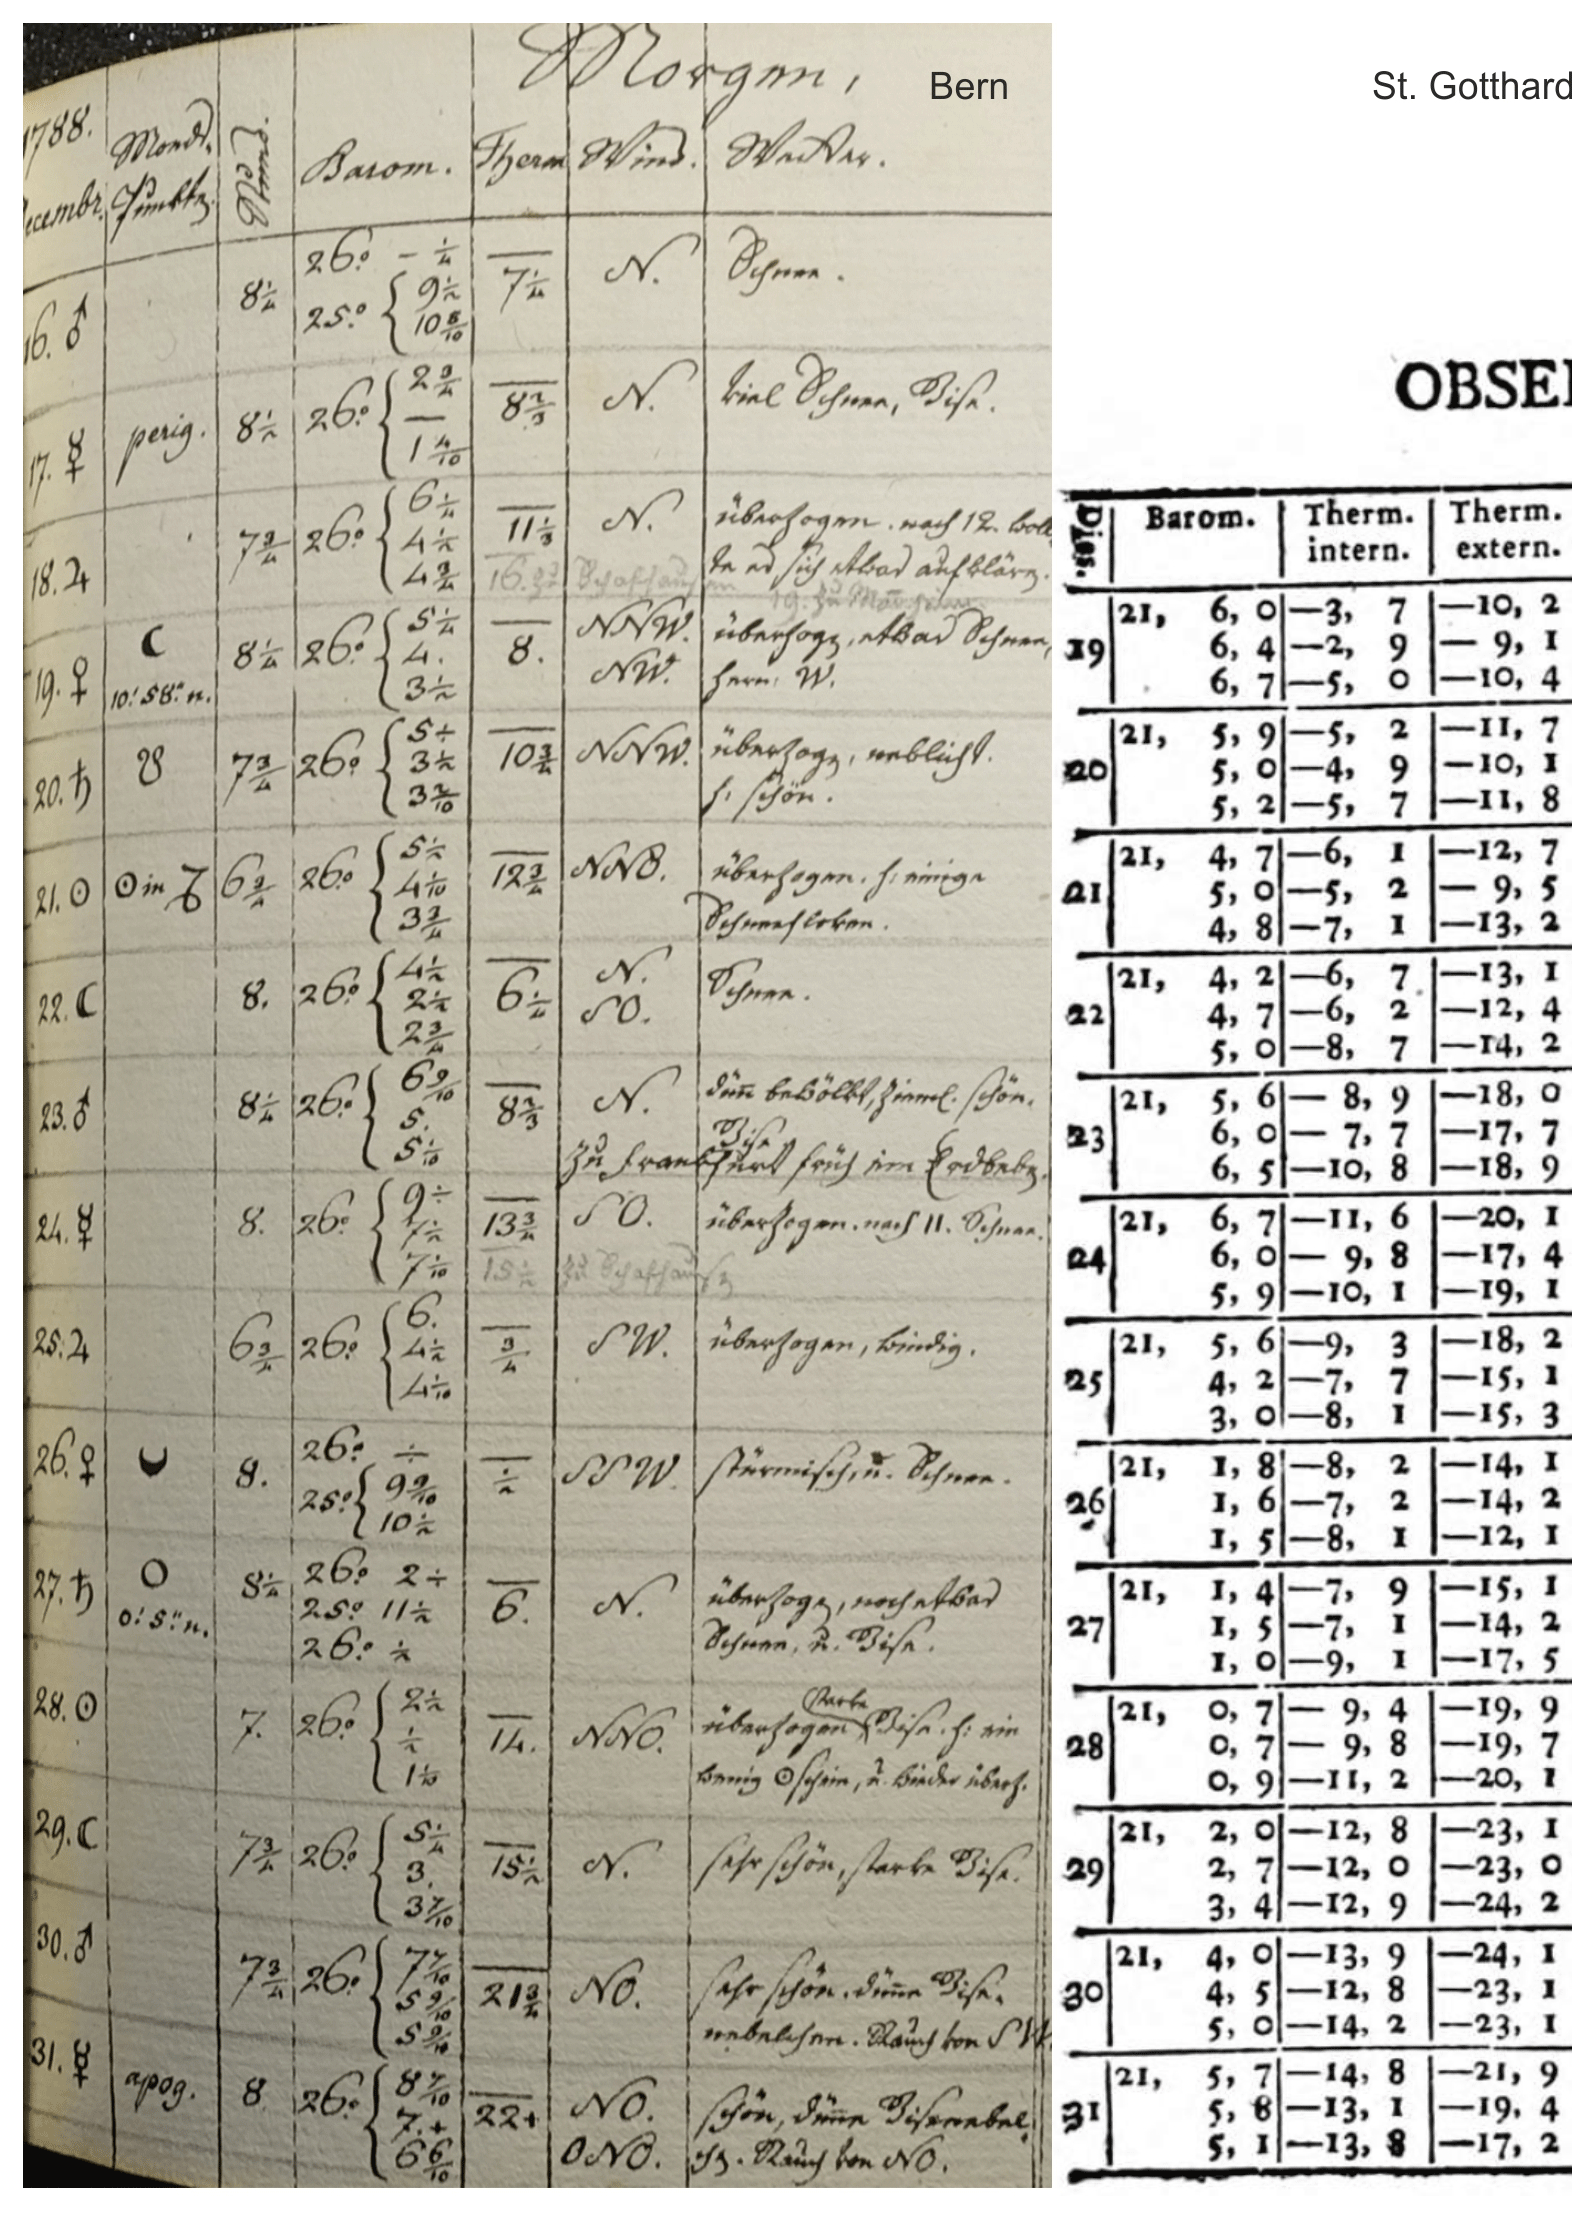 Bern
St. Gotthard
Morgen,
1788.
Monds-
Barom.
Therm
Wind.
Wetter.
16. ♂
8 1/4
26.° – 1/4
25.° { 9 1/2
10 8/10
7 1/4
N.
Schnee.
17. ☿
perig.
8 1/2
26.° { 2 3/4
—
1 4/10
8 2/3
N.
viel Schnee, Bise.
18. ♃
7 3/4
26.° { 6 1/4
4 1/2
4 3/4
11 1/3
N.
überzogen. nach 12. woll-
te es sich etwas aufklären.
16. zu Schafhausen
19. ♀
☾
10.' 58." n.
8 1/4
26.° { 5 1/4
4.
3 1/2
8.
NNW.
NW.
überzogen, etwas Schnee,
hern: W.
20. ♄
☋
7 3/4
26.° { 5 ÷
3 1/2
3 2/10
10 3/4
NNW.
überzogen, neblicht.
h: schön.
21. ☉
☉ in ♑
6 3/4
26.° { 5 1/2
4 1/10
3 3/4
12 3/4
NNO.
überzogen. h: einige
Schneefloken.
22. ☾
8.
26.° { 4 1/2
2 1/2
2 3/4
6 1/4
N.
SO.
Schnee.
23. ♂
8 1/4
26.° { 6 9/10
5.
5 1/10
8 2/3
N.
dünn bewölkt, zieml. schön.
Bise
zu Frankfurt früh ein Erdbeben.
24. ☿
8.
26.° { 9 ÷
7 1/2
7 1/10
13 3/4
SO.
überzogen. nach 11. Schnee.
15 1/2 zu Schafhausen
25. ♃
6 3/4
26.° { 6.
4 1/2
4 1/10
3/4
SW.
überzogen, windig.
26. ♀
8.
26.° ÷
25.° { 9 9/10
10 1/2
1/2
SSW.
stürmisch, u. Schnee.
27. ♄
0.' 5." n.
8 1/4
26.° 2 ÷
25.° 11 1/2
26.° 1/2
6.
N.
überzogen, noch etwas
Schnee, u. Bise.
28. ☉
7.
26.° { 2 1/2
1/2
1 1/10
14.
NNO.
starke
überzogen Bise. h: ein
wenig ☉schein, u. wieder überz.
29. ☾
7 3/4
26.° { 5 1/4
3.
3 7/10
15 1/2
N.
sehr schön, starke Bise.
30. ♂
7 3/4
26.° { 7 7/10
5 9/10
5 9/10
21 3/4
NO.
sehr schön. dünne Bise-
nebelchen. Rauch von SW.
31. ☿
apog.
8
26.° { 8 7/10
7. +
6 6/10
22 +
NO.
ONO.
schön, dünne Bisenebel-
chen. Rauch von NO.
OBSE
Dies. Barom. Therm. intern. Therm. extern.
19 21, 6, 0 —3, 7 —10, 2
6, 4 —2, 9 — 9, 1
6, 7 —5, 0 —10, 4
20 21, 5, 9 —5, 2 —11, 7
5, 0 —4, 9 —10, 1
5, 2 —5, 7 —11, 8
21 21, 4, 7 —6, 1 —12, 7
5, 0 —5, 2 — 9, 5
4, 8 —7, 1 —13, 2
22 21, 4, 2 —6, 7 —13, 1
4, 7 —6, 2 —12, 4
5, 0 —8, 7 —14, 2
23 21, 5, 6 — 8, 9 —18, 0
6, 0 — 7, 7 —17, 7
6, 5 —10, 8 —18, 9
24 21, 6, 7 —11, 6 —20, 1
6, 0 — 9, 8 —17, 4
5, 9 —10, 1 —19, 1
25 21, 5, 6 —9, 3 —18, 2
4, 2 —7, 7 —15, 1
3, 0 —8, 1 —15, 3
26 21, 1, 8 —8, 2 —14, 1
1, 6 —7, 2 —14, 2
1, 5 —8, 1 —12, 1
27 21, 1, 4 —7, 9 —15, 1
1, 5 —7, 1 —14, 2
1, 0 —9, 1 —17, 5
28 21, 0, 7 — 9, 4 —19, 9
0, 7 — 9, 8 —19, 7
0, 9 —11, 2 —20, 1
29 21, 2, 0 —12, 8 —23, 1
2, 7 —12, 0 —23, 0
3, 4 —12, 9 —24, 2
30 21, 4, 0 —13, 9 —24, 1
4, 5 —12, 8 —23, 1
5, 0 —14, 2 —23, 1
31 21, 5, 7 —14, 8 —21, 9
5, 8 —13, 1 —19, 4
5, 1 —13, 8 —17, 2